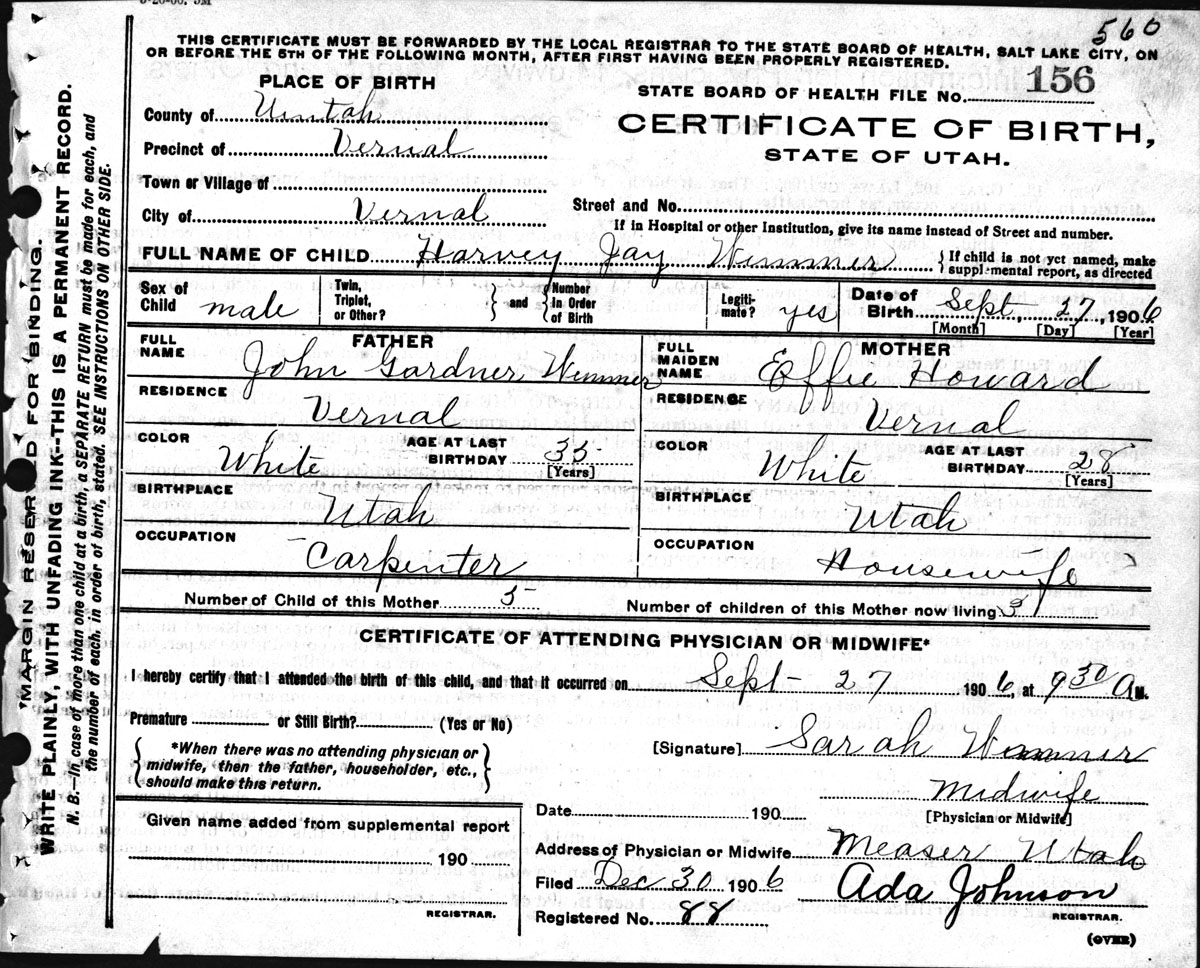 560
THIS CERTIFICATE MUST BE FORWARDED BY THE LOCAL REGISTRAR TO THE STATE BOARD OF HEALTH, SALT LAKE CITY, ON
OR BEFORE THE 5TH OF THE FOLLOWING MONTH, AFTER FIRST HAVING BEEN PROPERLY REGISTERED.
PLACE OF BIRTH
STATE BOARD OF HEALTH FILE No. 156
County of Uintah
CERTIFICATE OF BIRTH,
STATE OF UTAH.
Precinct of Vernal
Town or Village of
City of Vernal
Street and No.
If in Hospital or other Institution, give its name instead of Street and number.
FULL NAME OF CHILD Harvey Jay Wimmer { If child is not yet named, make
supplemental report, as directed
Sex of Child male
Twin, Triplet, or Other? } and { Number in Order of Birth
Legiti-mate? yes
Date of Birth Sept. 27, 1906
[Month] [Day] [Year]
FATHER
FULL NAME John Gardner Wimmer
RESIDENCE Vernal
COLOR White AGE AT LAST BIRTHDAY 35 [Years]
BIRTHPLACE Utah
OCCUPATION Carpenter
MOTHER
FULL MAIDEN NAME Effie Howard
RESIDENCE Vernal
COLOR White AGE AT LAST BIRTHDAY 28 [Years]
BIRTHPLACE Utah
OCCUPATION Housewife
Number of Child of this Mother 5 Number of children of this Mother now living 3
CERTIFICATE OF ATTENDING PHYSICIAN OR MIDWIFE*
I hereby certify that I attended the birth of this child, and that it occurred on Sept- 27 1906 at 9 30 A M.
Premature or Still Birth? (Yes or No)
{ *When there was no attending physician or
midwife, then the father, householder, etc.,
should make this return. }
[Signature] Sarah Wimmer
Midwife
[Physician or Midwife]
Date 190
*Given name added from supplemental report
190
REGISTRAR.
Address of Physician or Midwife Measer Utah
Filed Dec 30 1906 Ada Johnson
REGISTRAR.
Registered No. 88
(OVER)
*MARGIN RESERVED FOR BINDING.
WRITE PLAINLY, WITH UNFADING INK--THIS IS A PERMANENT RECORD.
N. B.—In case of more than one child at a birth, a SEPARATE RETURN must be made for each, and
the number of each, in order of birth, stated. SEE INSTRUCTIONS ON OTHER SIDE.